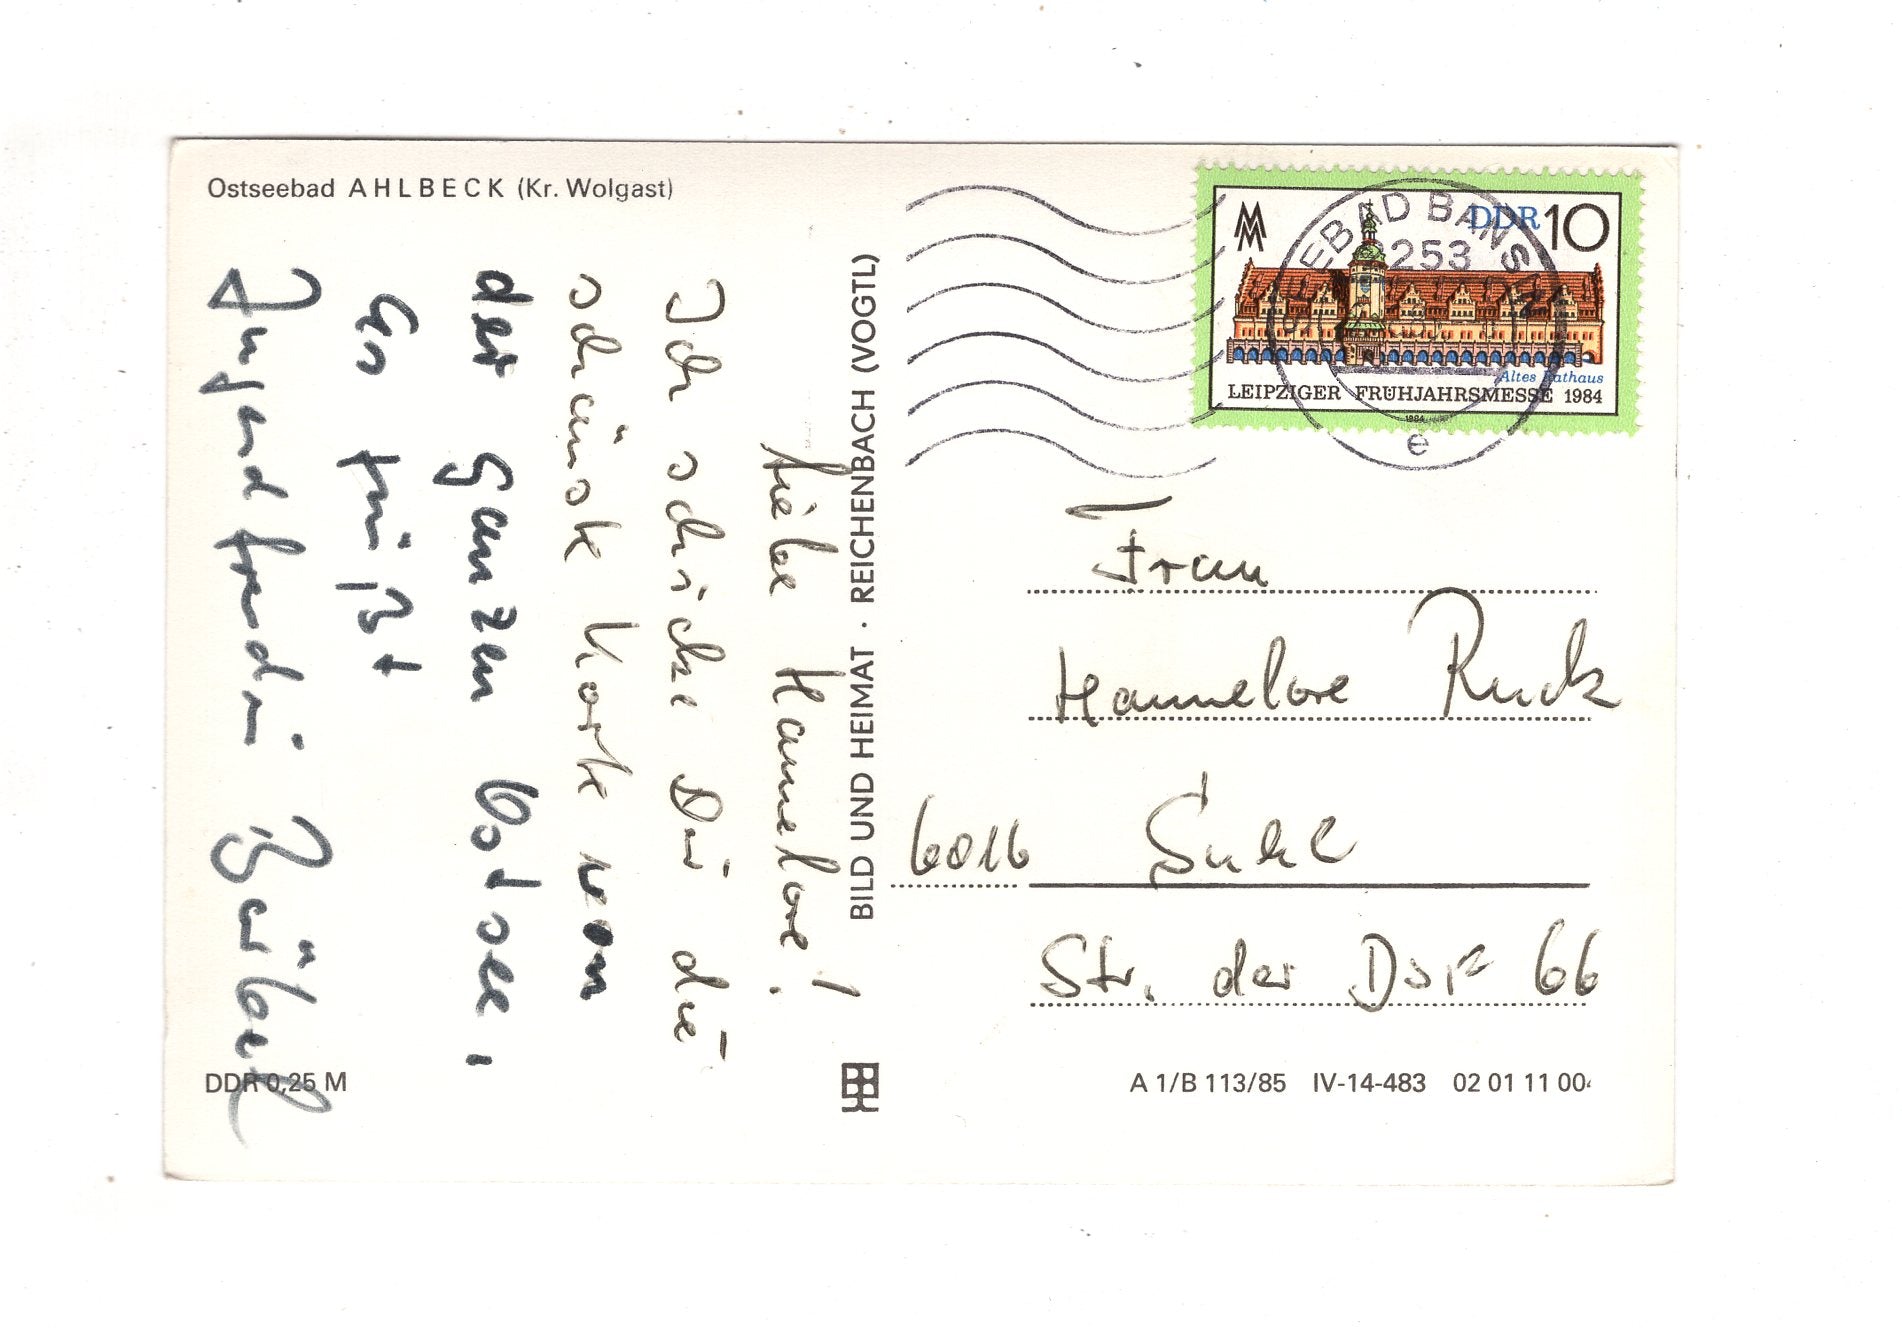 Ostseebad AHLBECK (Kr. Wolgast)
Liebe Hannelore!
Ich schicke Dir die
schönste Karte von
der ganzen Ostsee,
Es grüßt
Jugendfreundin Bärbel
DDR 0,25 M
BILD UND HEIMAT · REICHENBACH (VOGTL)
SEEBAD BANSIN
253
e
MM
DDR 10
Altes Rathaus
LEIPZIGER FRÜHJAHRSMESSE 1984
1984
Frau
Hannelore Ruck
6016 Suhl
Str. der DSF 66
A 1/B 113/85 IV-14-483 02 01 11 00